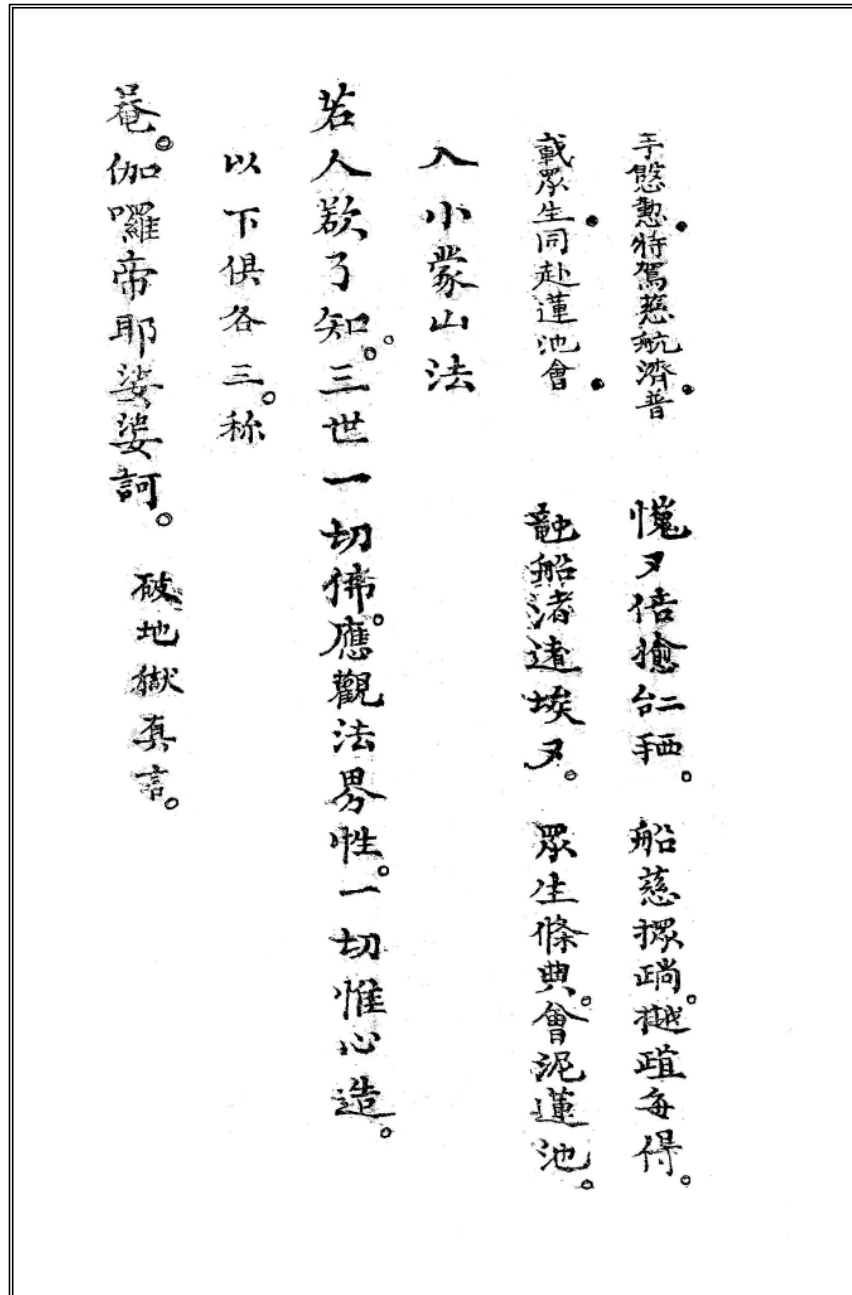 手慇懃特駕慈航濟普 𠄩𢬣。船慈 每得。
載眾生同赴蓮池會 船渚遣埃。眾生條典。會泥蓮池。
入小蒙山法
若人欲了知。三世一切佛。應觀法界性。一切惟心造。
以下俱各三称。
菴。伽囉帝耶娑婆訶。破地獄真言。